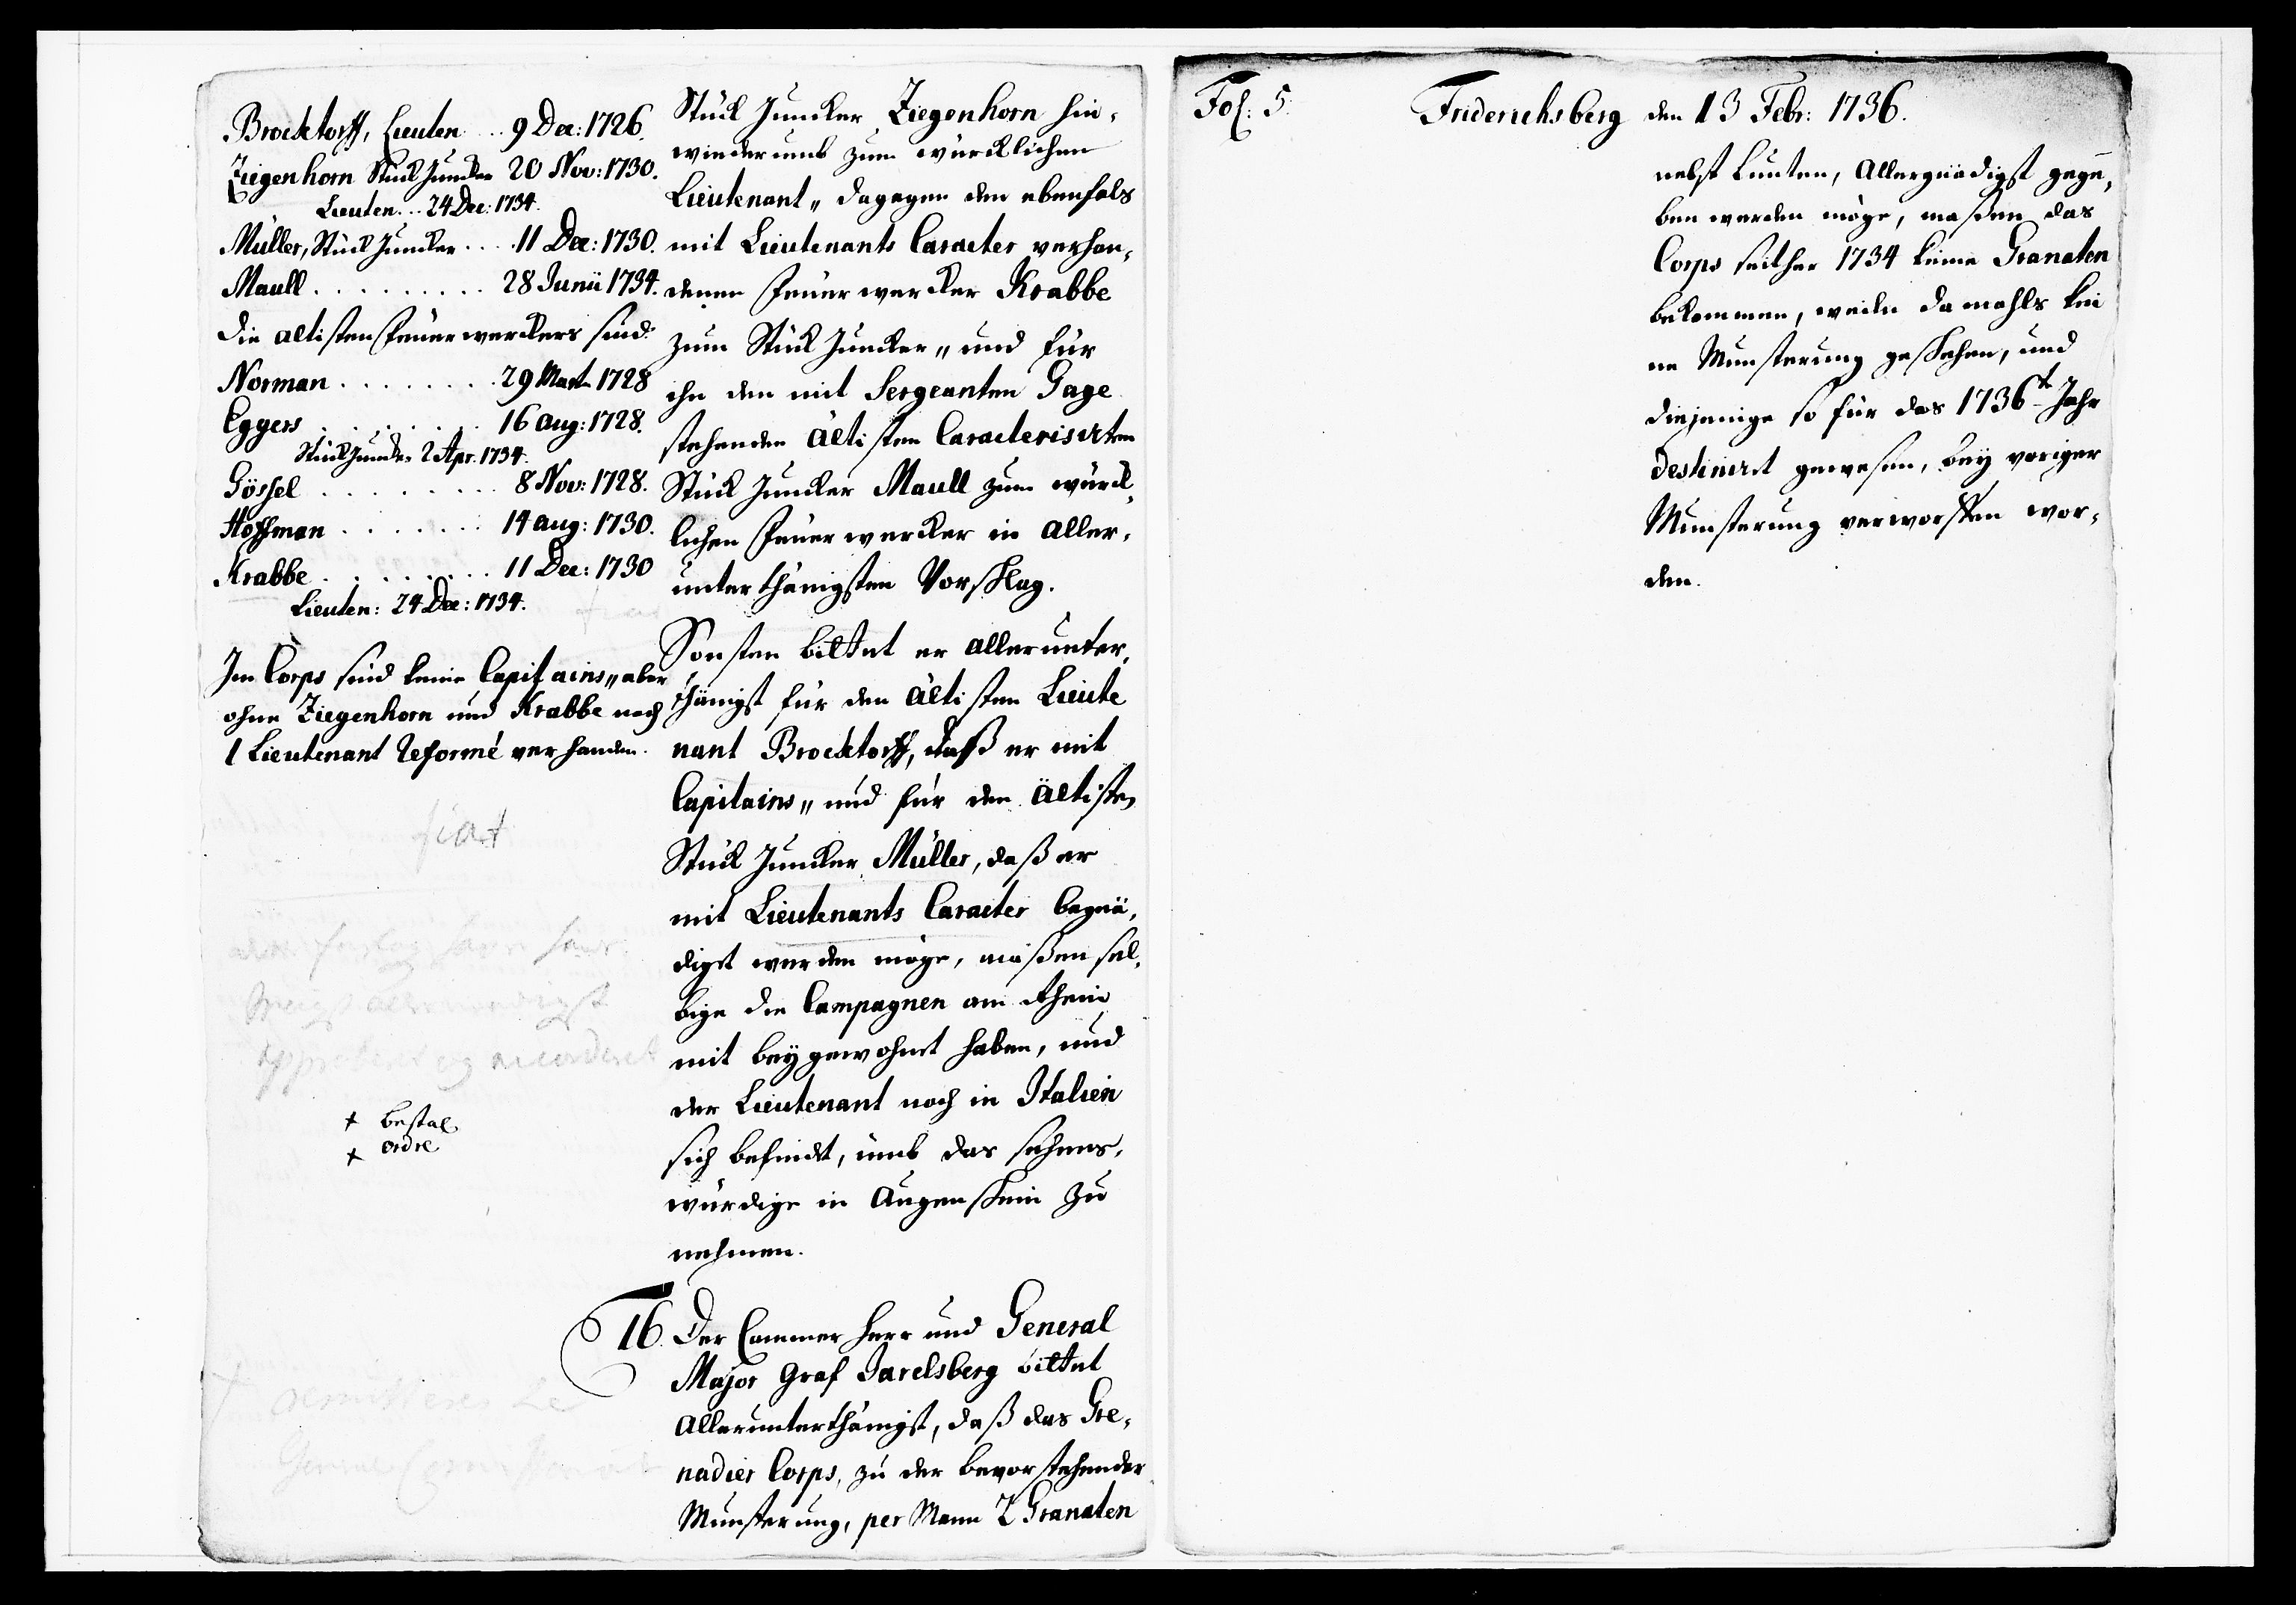 Brocktorff, Lieuten .. 9 Dec: 1726.
Ziegenhorn Stück Juncker 20 Nov: 1730.
Lieuten... 24 Dec: 1734.
Müller, Stück Juncker.... 11 Dec: 1730.
Maull......... 28 Junii 1734.
Die ältisten Feuerwerckers sind:
Norman........ 29 Mart 1728
Eggers........ 16 Aug: 1728.
Stück Juncker 2 Apr. 1734.
Gössel......... 8 Nov: 1728.
Hoffman....... 14 Aug: 1730.
Krabbe......... 11 Dec: 1730
Lieuten: 24 Dec: 1734.
Im Corps sind keine Capitains„ aber
ohne Ziegenhorn und Krabbe noch
1 Lieutenant Reformé verhanden.
fiat
allernaadigst
approberet og accorderet
+ bestal.
+ ordre
General Commissariat
Stück Juncker Ziegenhorn hin-
wiederumb zum würcklichen
Lieutenant„ dagegen den ebenfals
mit Lieutenants Caracter verhan-
denen Feuerwercker Krabbe
zum Stück Juncker„ und für
ihn den mit Sergeanten Gage
stehenden ältisten Caracterisirten
Stück Juncker Maull zum würck-
lichen Feuerwercker in aller-
unterthänigsten Vorschlag.
Sonsten bittet er allerunter-
thänigst für den ältisten Lieute
nant Brocktorff, daß er mit
Capitains„ und für den ältisten
Stück Juncker Müller, daß er
mit Lieutenants Caracter begnä-
digt werden möge, maßen sel-
bige die Campagnen am Rhein
mit beygewohnt haben, und
der Lieutenant noch in Italien
sich befindt, umb das sehens-
würdige in Augenschein zu
nehmen.
16. Der Cammerherr und General
Major Graf Jarelsberg bittet
allerunterthänigst, daß das Gre-
nadier Corps, zu der bevorstehender
Munsterung, per Mann 2 Granaten
Fol: 5.
Friderichsberg den 13 Febr: 1736.
nebst Lunten, Allergnädigst gege-
ben werden möge, maßen das
Corps seither 1734 keine Granaten
bekommen, weiln damahls kei
ne Munsterung geschehen, und
diejenige so für das 1736t Jahr
destinirt gewesen, bey voriger
Munsterung verworffen wor-
den.